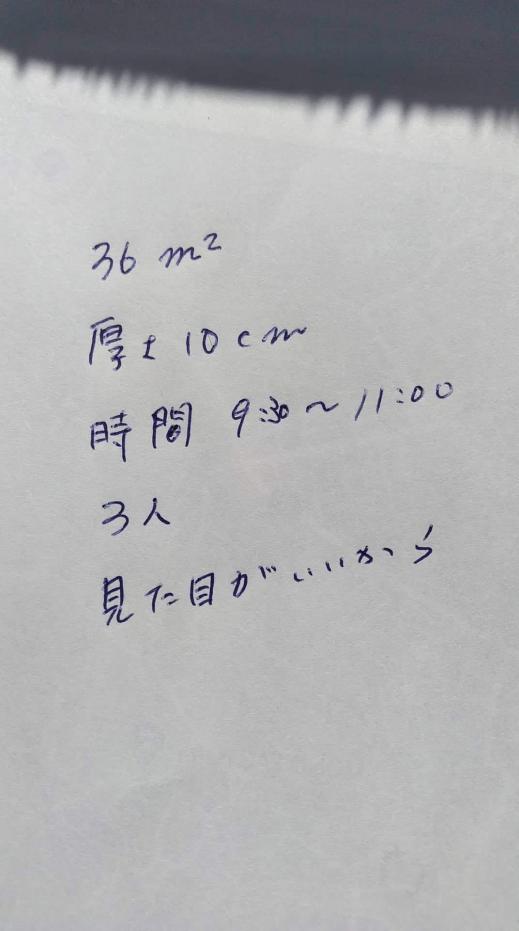 36 m²
厚さ10cm
時間 9:30〜11:00
3人
見た目がいいから